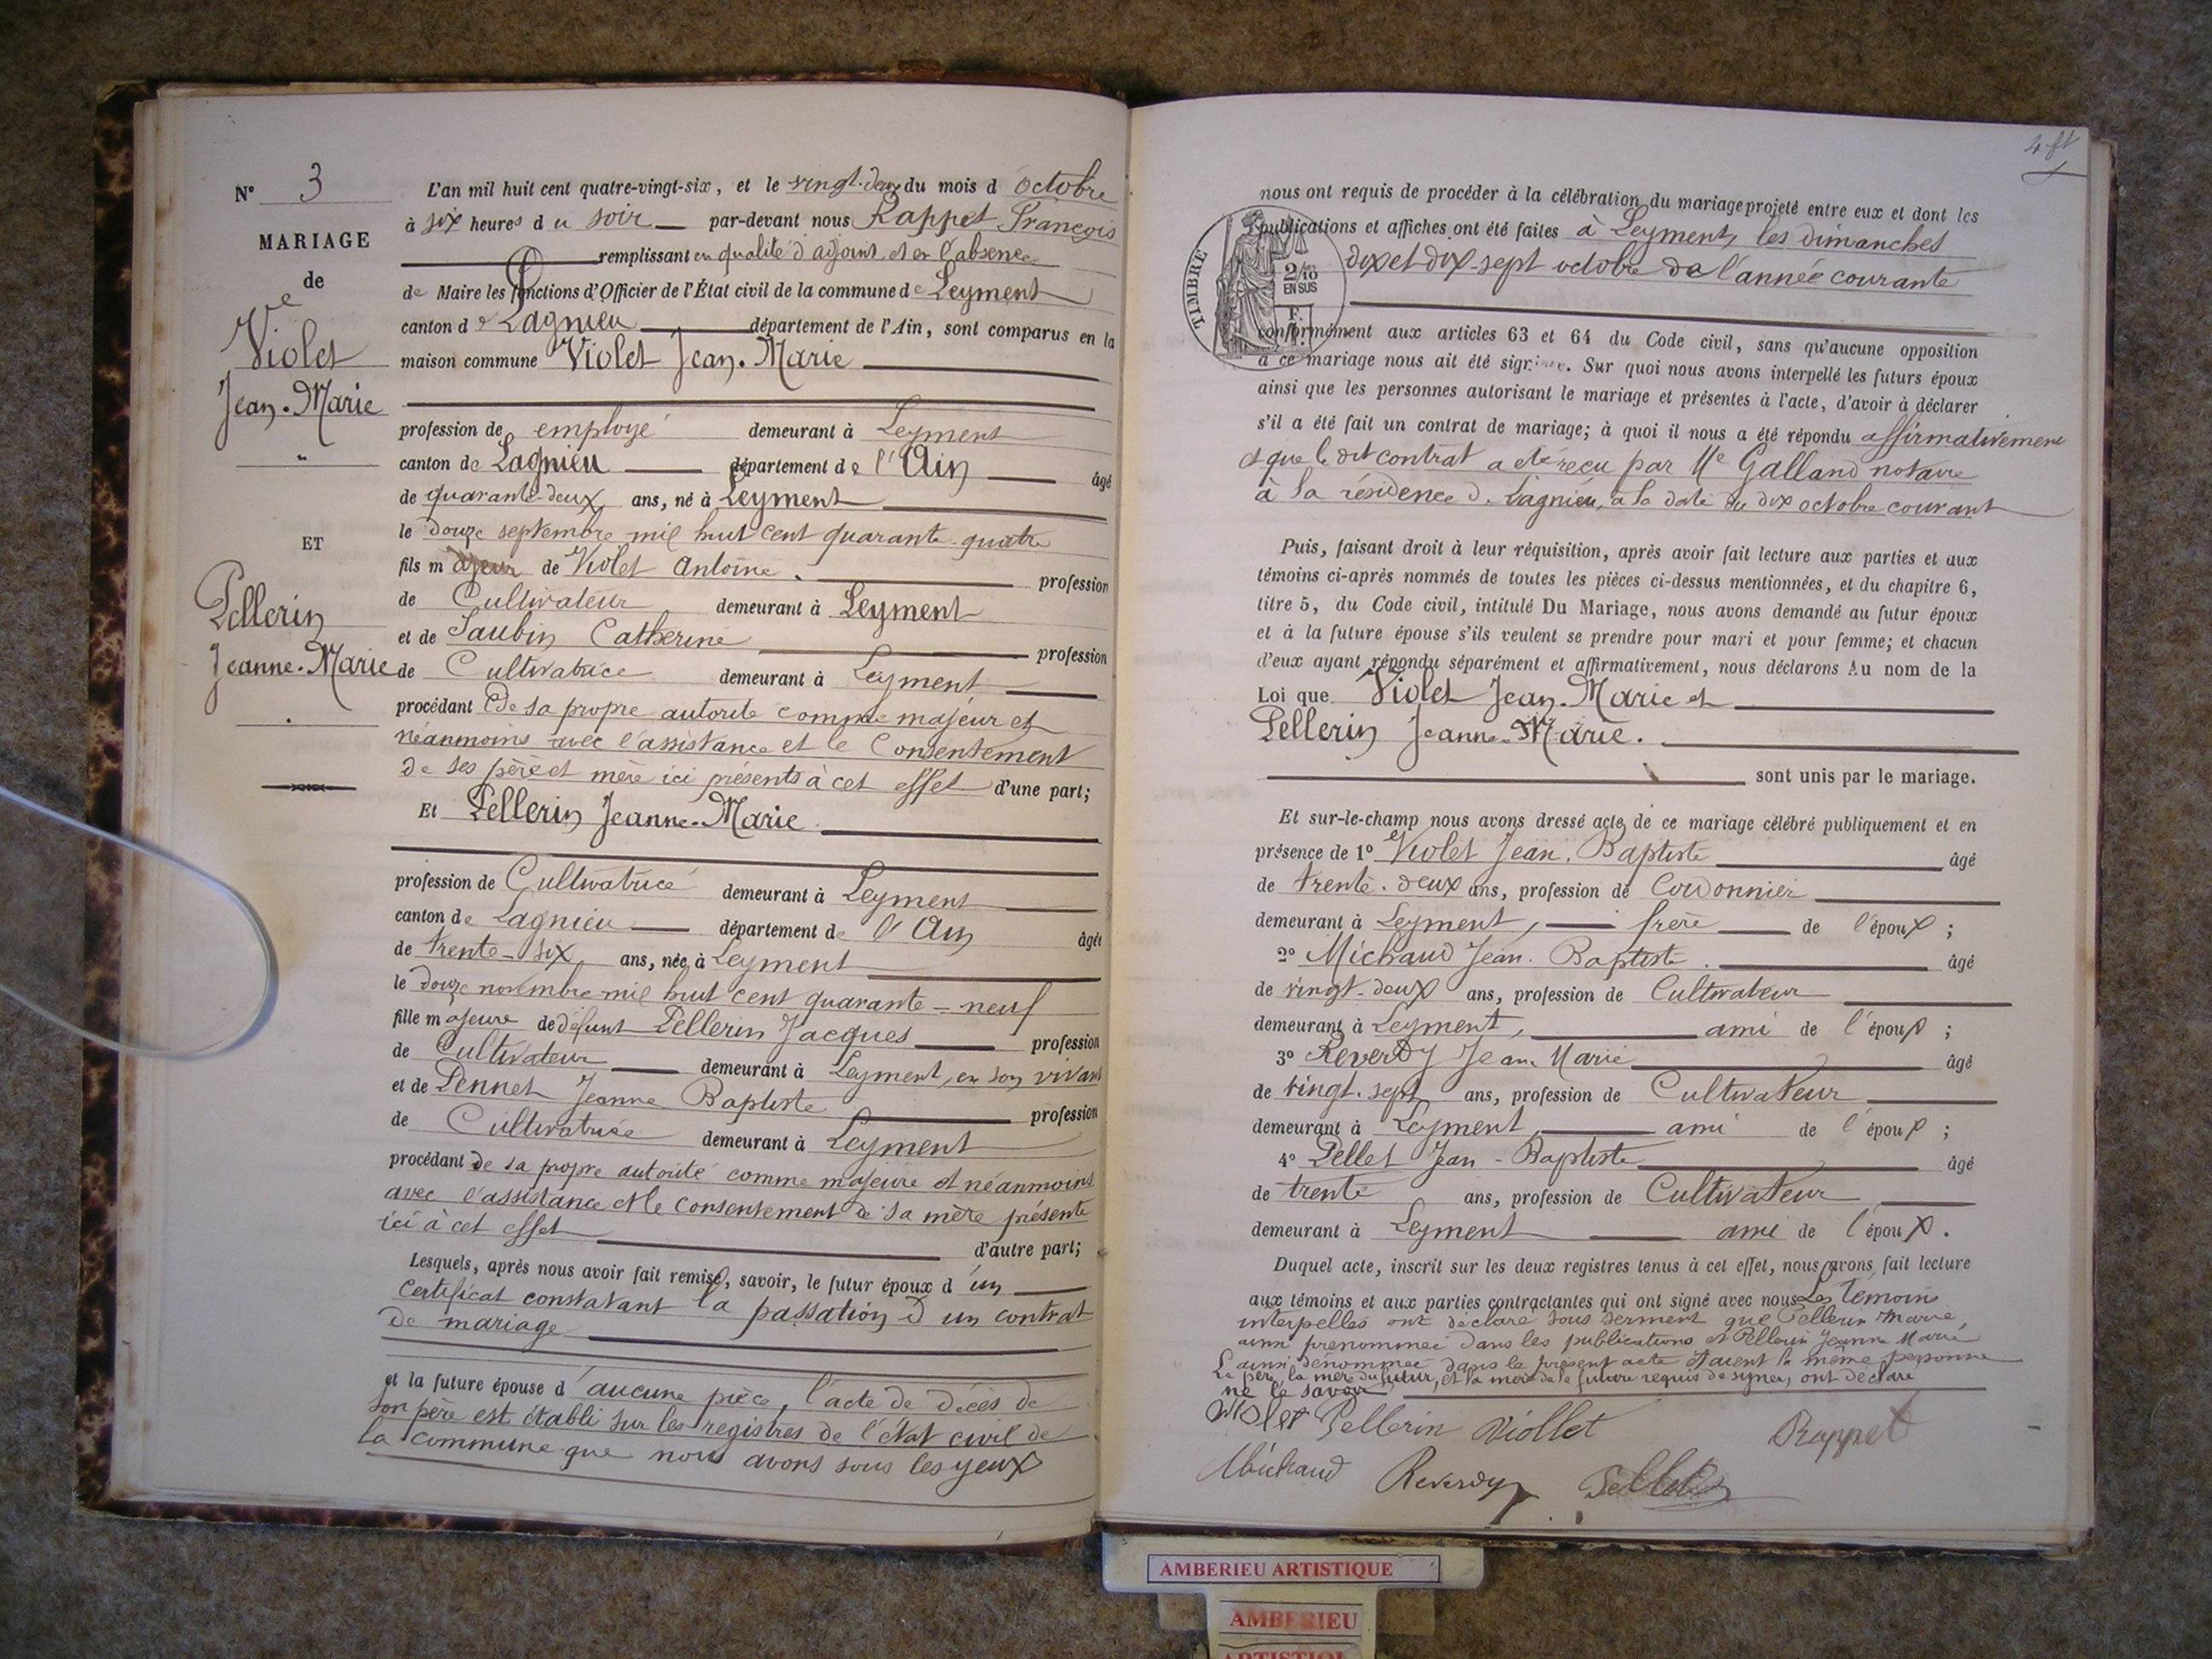 N° 3
MARIAGE
de
Ve
Violet
Jean-Marie
ET
Pellerin
Jeanne-Marie
L'an mil huit cent quatre-vingt-six, et le vingt-deux du mois d'octobre
à six heures du soir par-devant nous Rappet François
remplissant en qualité d'adjoint et en l'absence
de Maire les fonctions d'Officier de l'État civil de la commune de Leyment
canton de Lagnieu département de l'Ain, sont comparus en la
maison commune Violet Jean-Marie
profession de employé demeurant à Leyment
canton de Lagnieu département de l'Ain âgé
de quarante-deux ans, né à Leyment
le douze septembre mil huit cent quarante-quatre
fils majeur de Violet Antoine
profession
de Cultivateur demeurant à Leyment
et de Saubin Catherine profession
de Cultivatrice demeurant à Leyment
procédant de sa propre autorité comme majeur et
néanmoins avec l'assistance et le consentement
de ses père et mère ici présents à cet effet d'une part;
Et Pellerin Jeanne-Marie
profession de Cultivatrice demeurant à Leyment
canton de Lagnieu département de l'Ain âgée
de trente-six ans, née à Leyment
le douze novembre mil huit cent quarante-neuf
fille majeure de défunt Pellerin Jacques profession
de Cultivateur demeurant à Leyment, en son vivant
et de Pennet Jeanne Baptiste profession
de Cultivatrice demeurant à Leyment
procédant de sa propre autorité comme majeure et néanmoins
avec l'assistance et le consentement de sa mère présente
ici à cet effet d'autre part;
Lesquels, après nous avoir fait remise, savoir, le futur époux d'un
certificat constatant la passation d'un contrat
de mariage
et la future épouse d'aucune pièce, l'acte de décès de
son père est établi sur les registres de l'état civil de
la commune que nous avons sous les yeux
4 ft
nous ont requis de procéder à la célébration du mariage projeté entre eux et dont les
publications et affiches ont été faites à Leyment, les dimanches
dix et dix-sept octobre de l'année courante
TIMBRE
2/10
EN SUS
F.
conformément aux articles 63 et 64 du Code civil, sans qu'aucune opposition
à ce mariage nous ait été signifiée. Sur quoi nous avons interpellé les futurs époux
ainsi que les personnes autorisant le mariage et présentes à l'acte, d'avoir à déclarer
s'il a été fait un contrat de mariage; à quoi il nous a été répondu affirmativement
et que le dit contrat a été reçu par Me Galland notaire
à la résidence de Lagnieu, à la date du dix octobre courant
Puis, faisant droit à leur réquisition, après avoir fait lecture aux parties et aux
témoins ci-après nommés de toutes les pièces ci-dessus mentionnées, et du chapitre 6,
titre 5, du Code civil, intitulé Du Mariage, nous avons demandé au futur époux
et à la future épouse s'ils veulent se prendre pour mari et pour femme; et chacun
d'eux ayant répondu séparément et affirmativement, nous déclarons Au nom de la
Loi que Violet Jean-Marie et
Pellerin Jeanne-Marie.
sont unis par le mariage.
Et sur-le-champ nous avons dressé acte de ce mariage célébré publiquement et en
présence de 1° Violet Jean-Baptiste âgé
de trente-deux ans, profession de Cordonnier
demeurant à Leyment, frère de l'époux;
2° Michaud Jean-Baptiste âgé
de vingt-deux ans, profession de Cultivateur
demeurant à Leyment, ami de l'époux;
3° Reverdy Jean Marie âgé
de vingt-sept ans, profession de Cultivateur
demeurant à Leyment, ami de l'époux;
4° Pellet Jean-Baptiste âgé
de trente ans, profession de Cultivateur
demeurant à Leyment ami de l'époux.
Duquel acte, inscrit sur les deux registres tenus à cet effet, nous avons fait lecture
aux témoins et aux parties contractantes qui ont signé avec nous Les témoins
interpellés ont déclaré sous serment que Pellerin Marie,
ainsi prénommée dans les publications et Pellerin Jeanne Marie
ainsi dénommée dans le présent acte étaient la même personne
Le père, la mère du futur, et la mère de la future requis de signer, ont déclaré
ne le savoir
Violet Pellerin Viollet Rappet
Michaud Reverdy Pellet
AMBERIEU ARTISTIQUE
AMBERIEU
ARTISTIQUE